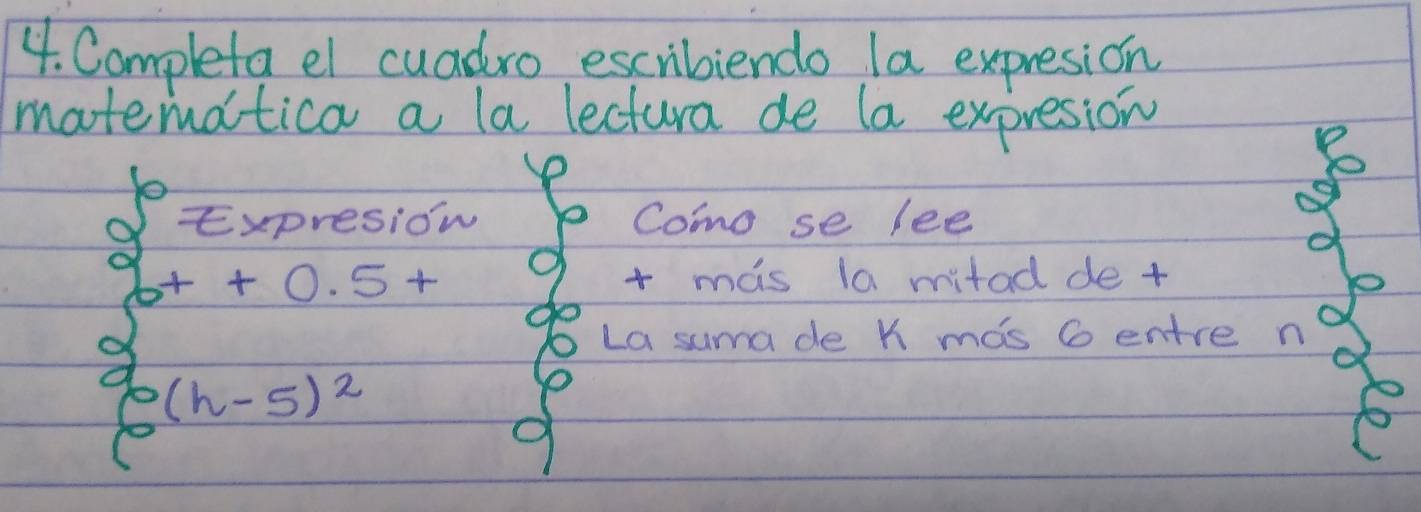 4. Completa el cuadro escribiendo la expresión
matemática a la lectura de la expresión
Expresión Cómo se lee
+ + 0.5 + + más la mitad de +
La suma de K más 6 entre n
(h-5)²